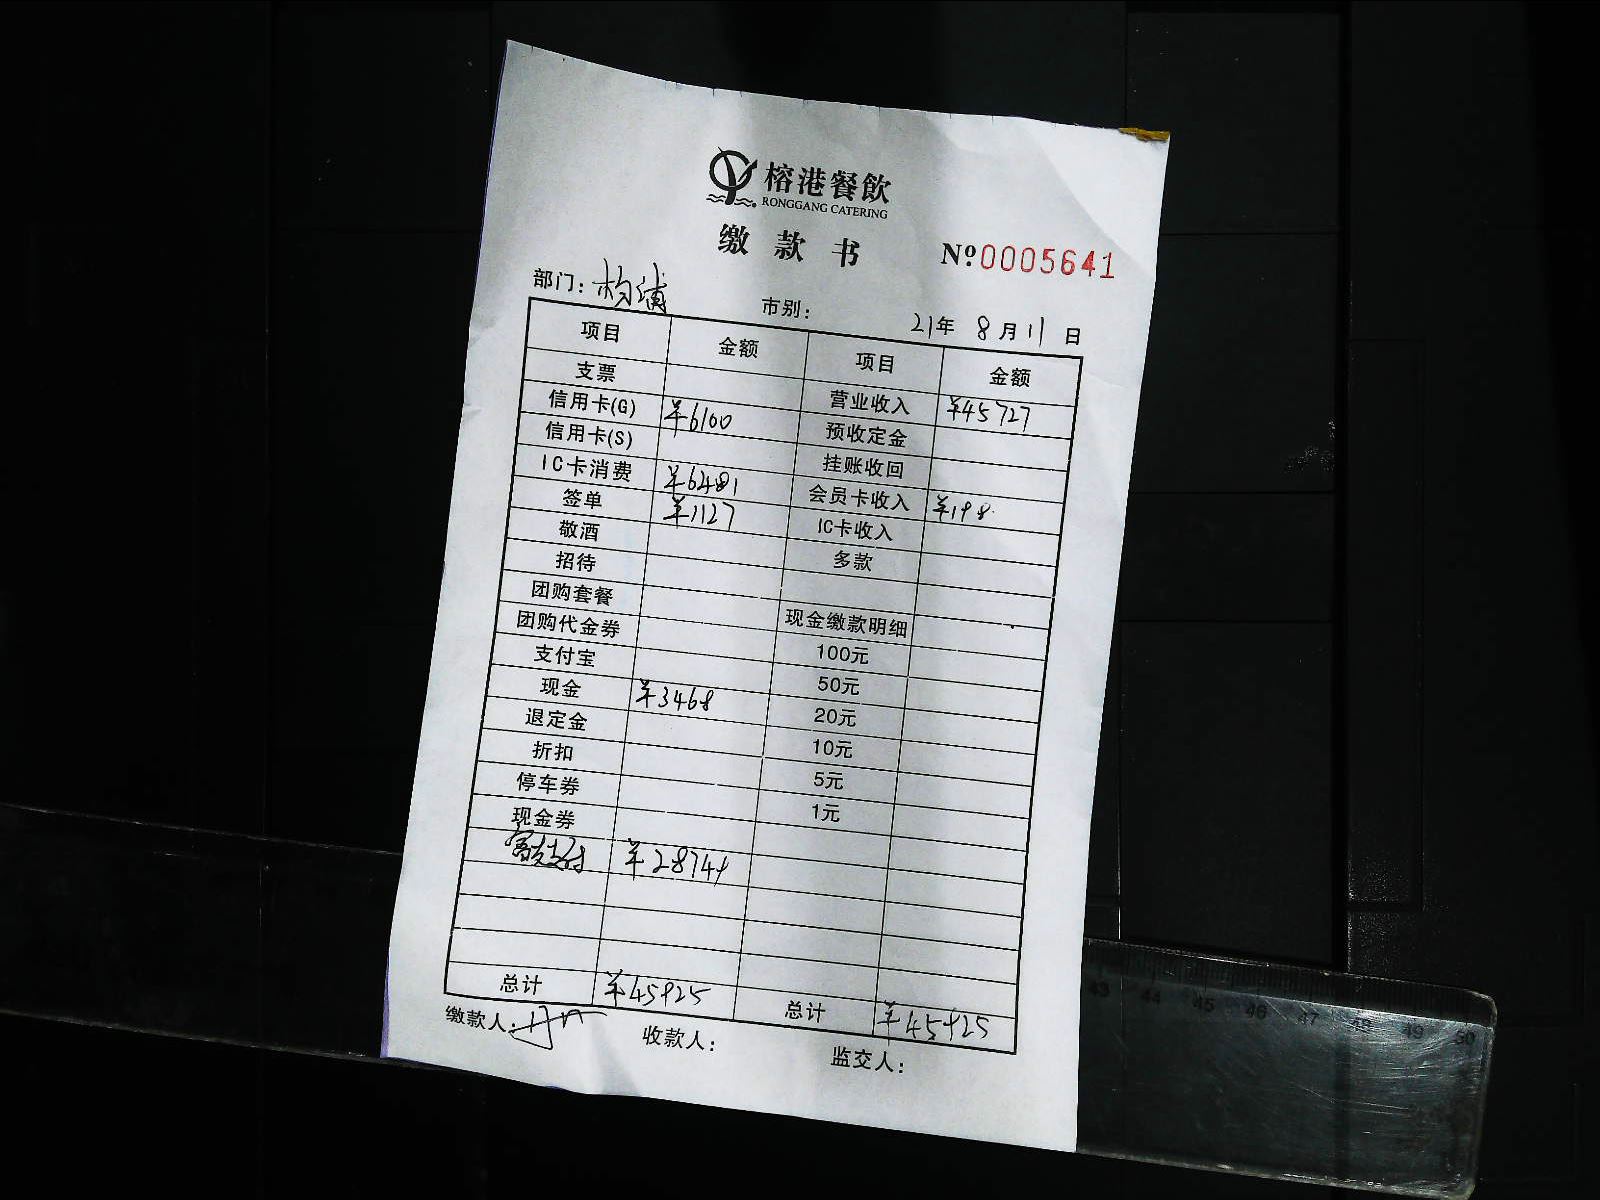 榕港餐飲
RONGGANG CATERING
缴款书 №0005641
部门：杨浦 市别： 21年 8月11日
项目 金额 项目 金额
支票 营业收入 ¥45727
信用卡(G) ¥6100 预收定金
信用卡(S) 挂账收回
IC卡消费 ¥6481 会员卡收入 ¥198
签单 ¥1127 IC卡收入
敬酒 多款
招待
团购套餐 现金缴款明细
团购代金券 100元
支付宝 50元
现金 ¥3468 20元
退定金 10元
折扣 5元
停车券 1元
现金券
富友支付 ¥28749
总计 ¥45925 总计 ¥45925
缴款人： 收款人： 监交人：
43 44 45 46 47 48 49 50